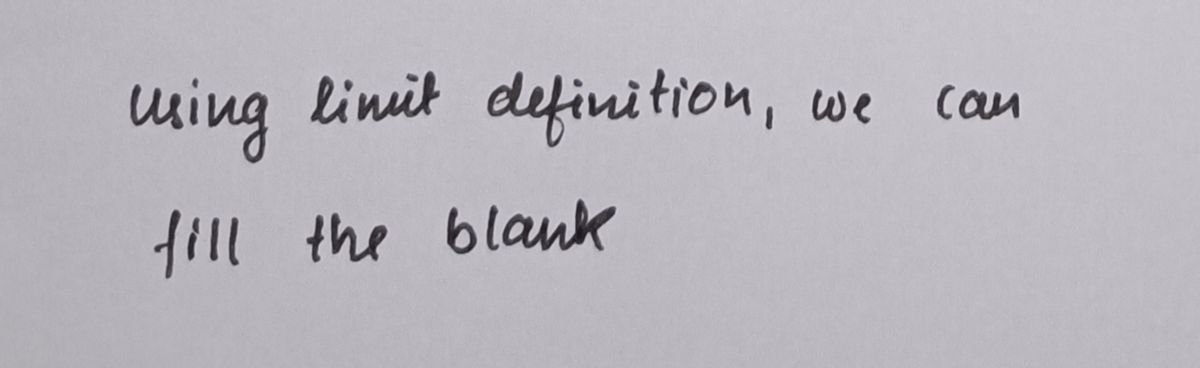 using limit definition, we can
fill the blank